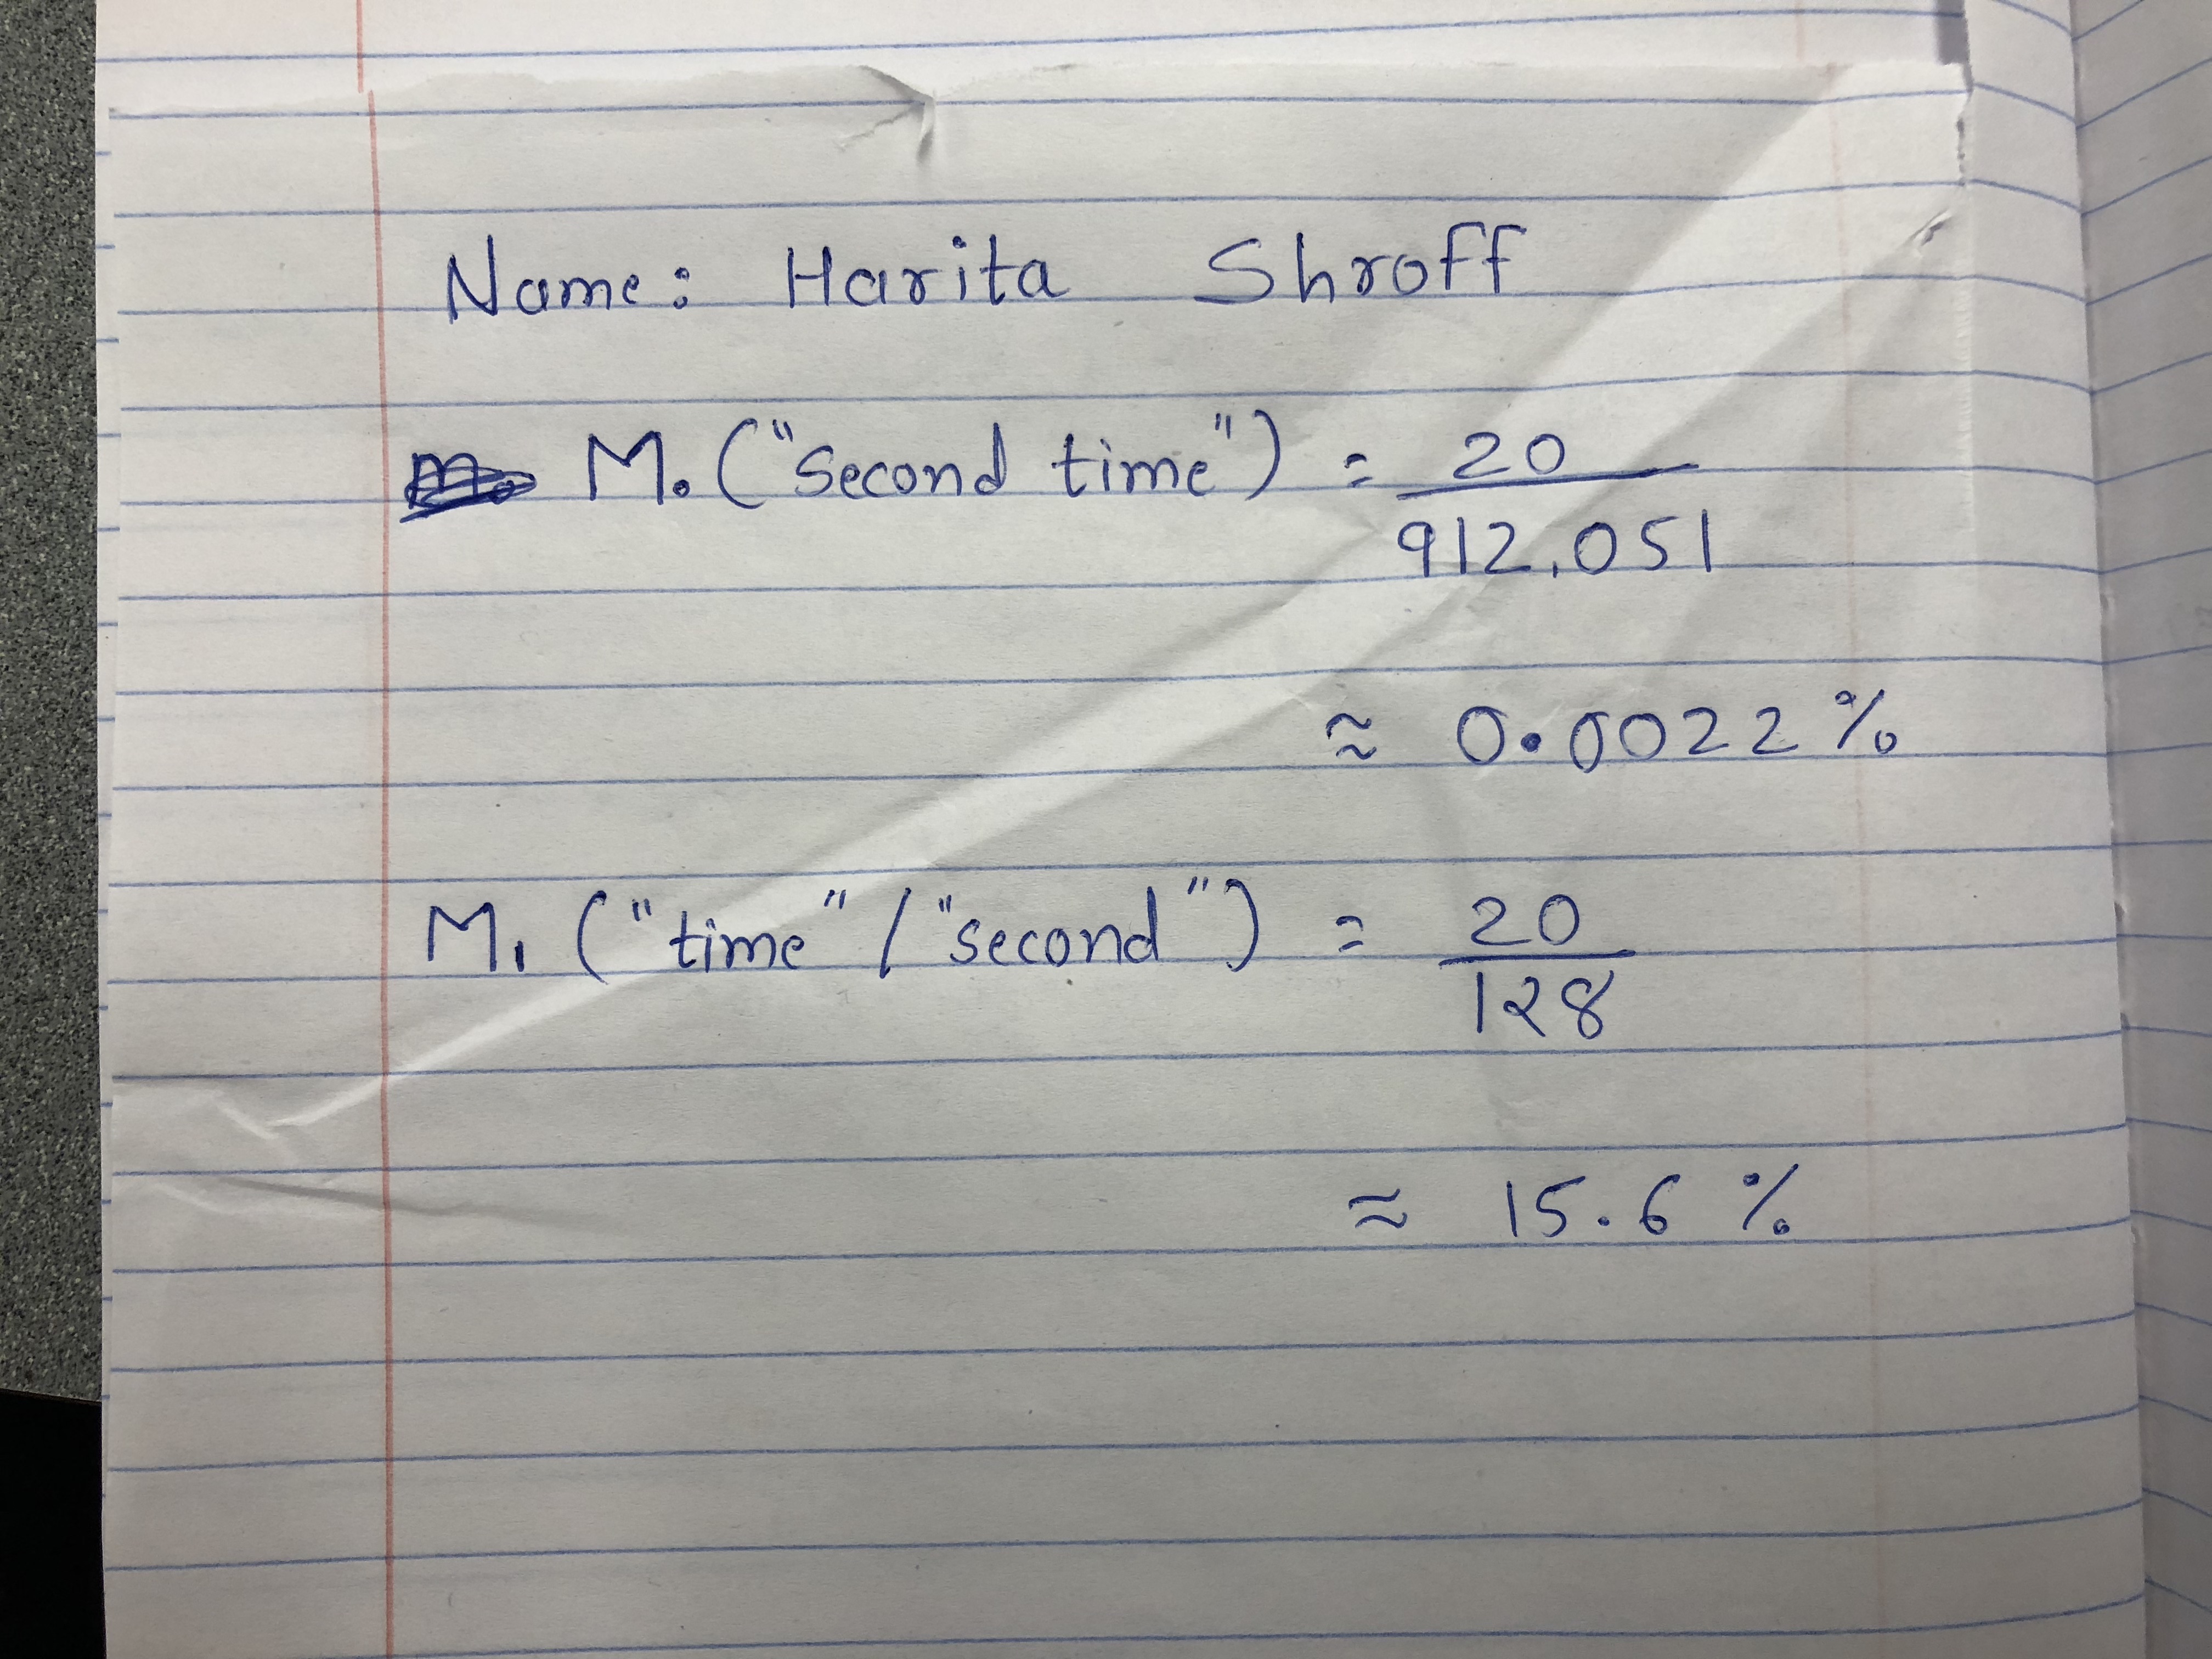 Name: Harita Shroff
M. ("second time") = 20
912,051
≈ 0.0022 %
M1 ("time" / "second") = 20
128
≈ 15.6 %